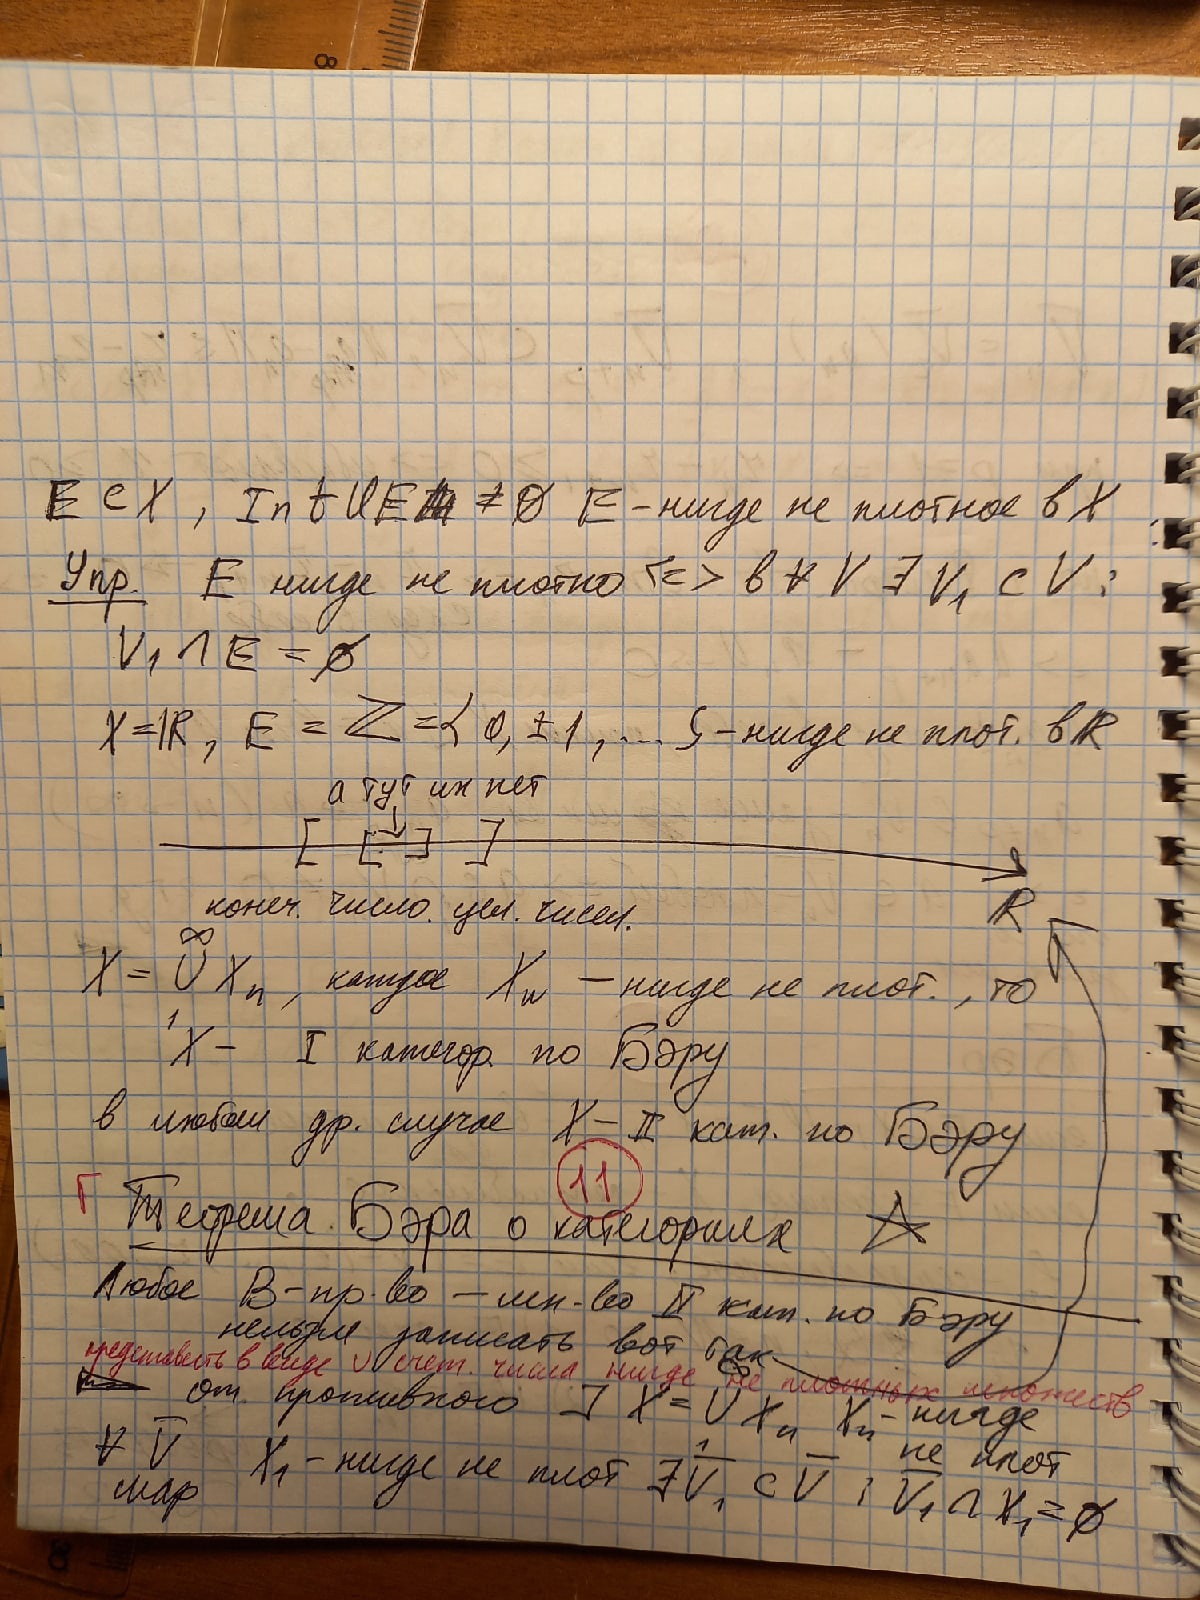 E ⊂ X, Int Cl E ≠ ∅ E - нигде не плотное в X
Упр. E нигде не плотно <=> в ∀ V ∃ V₁ ⊂ V :
V₁ ∩ E = ∅
X = ℝ, E = ℤ = { 0, ±1, ... } - нигде не плот. в ℝ
а тут их нет
[ [ ] ]
ℝ
конеч. число. цел. чисел.
X = ∞ ∪ 1 Xₙ, каждое Xₙ - нигде не плот., то
X - I категор. по Бэру
в любом др. случае X - II кат. по Бэру
11
Г Теорема Бэра о категориях ☆
Любое B-пр-во - мн-во II кат. по Бэру
нельзя записать вот так
представить в виде ∪ счет. числа нигде не плотных множеств
от противного ∃ X = ∞ ∪ 1 Xₙ Xₙ - нигде
не плот
∀ V̅ X₁ - нигде не плот ∃ V̅₁ ⊂ V̅ : V̅₁ ∩ X₁ = ∅
шар